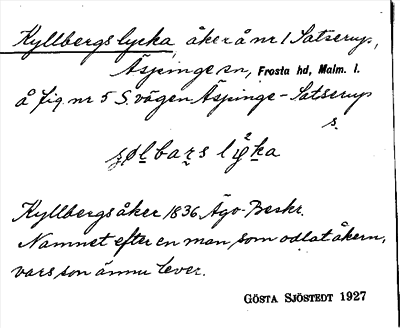 Kyllbergslycka, åker å nr 1 Satserup,
Äspinge sn, Frosta hd, Malm. l.
å fig nr 5 S. vägen Äspinge-Satserup
s.
Kyllbergsåker 1836 Ägo-Beskr.
Namnet efter en man som odlat åkern,
vars son ännu lever.
GÖSTA SJÖSTEDT 1927